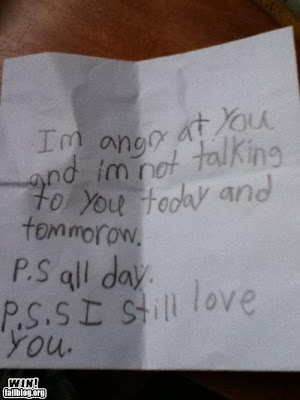 Im angry at you
and im not talking
to you today and
tommorow.
P.S all day.
P.S.S I still love
you.
WIN!
failblog.org